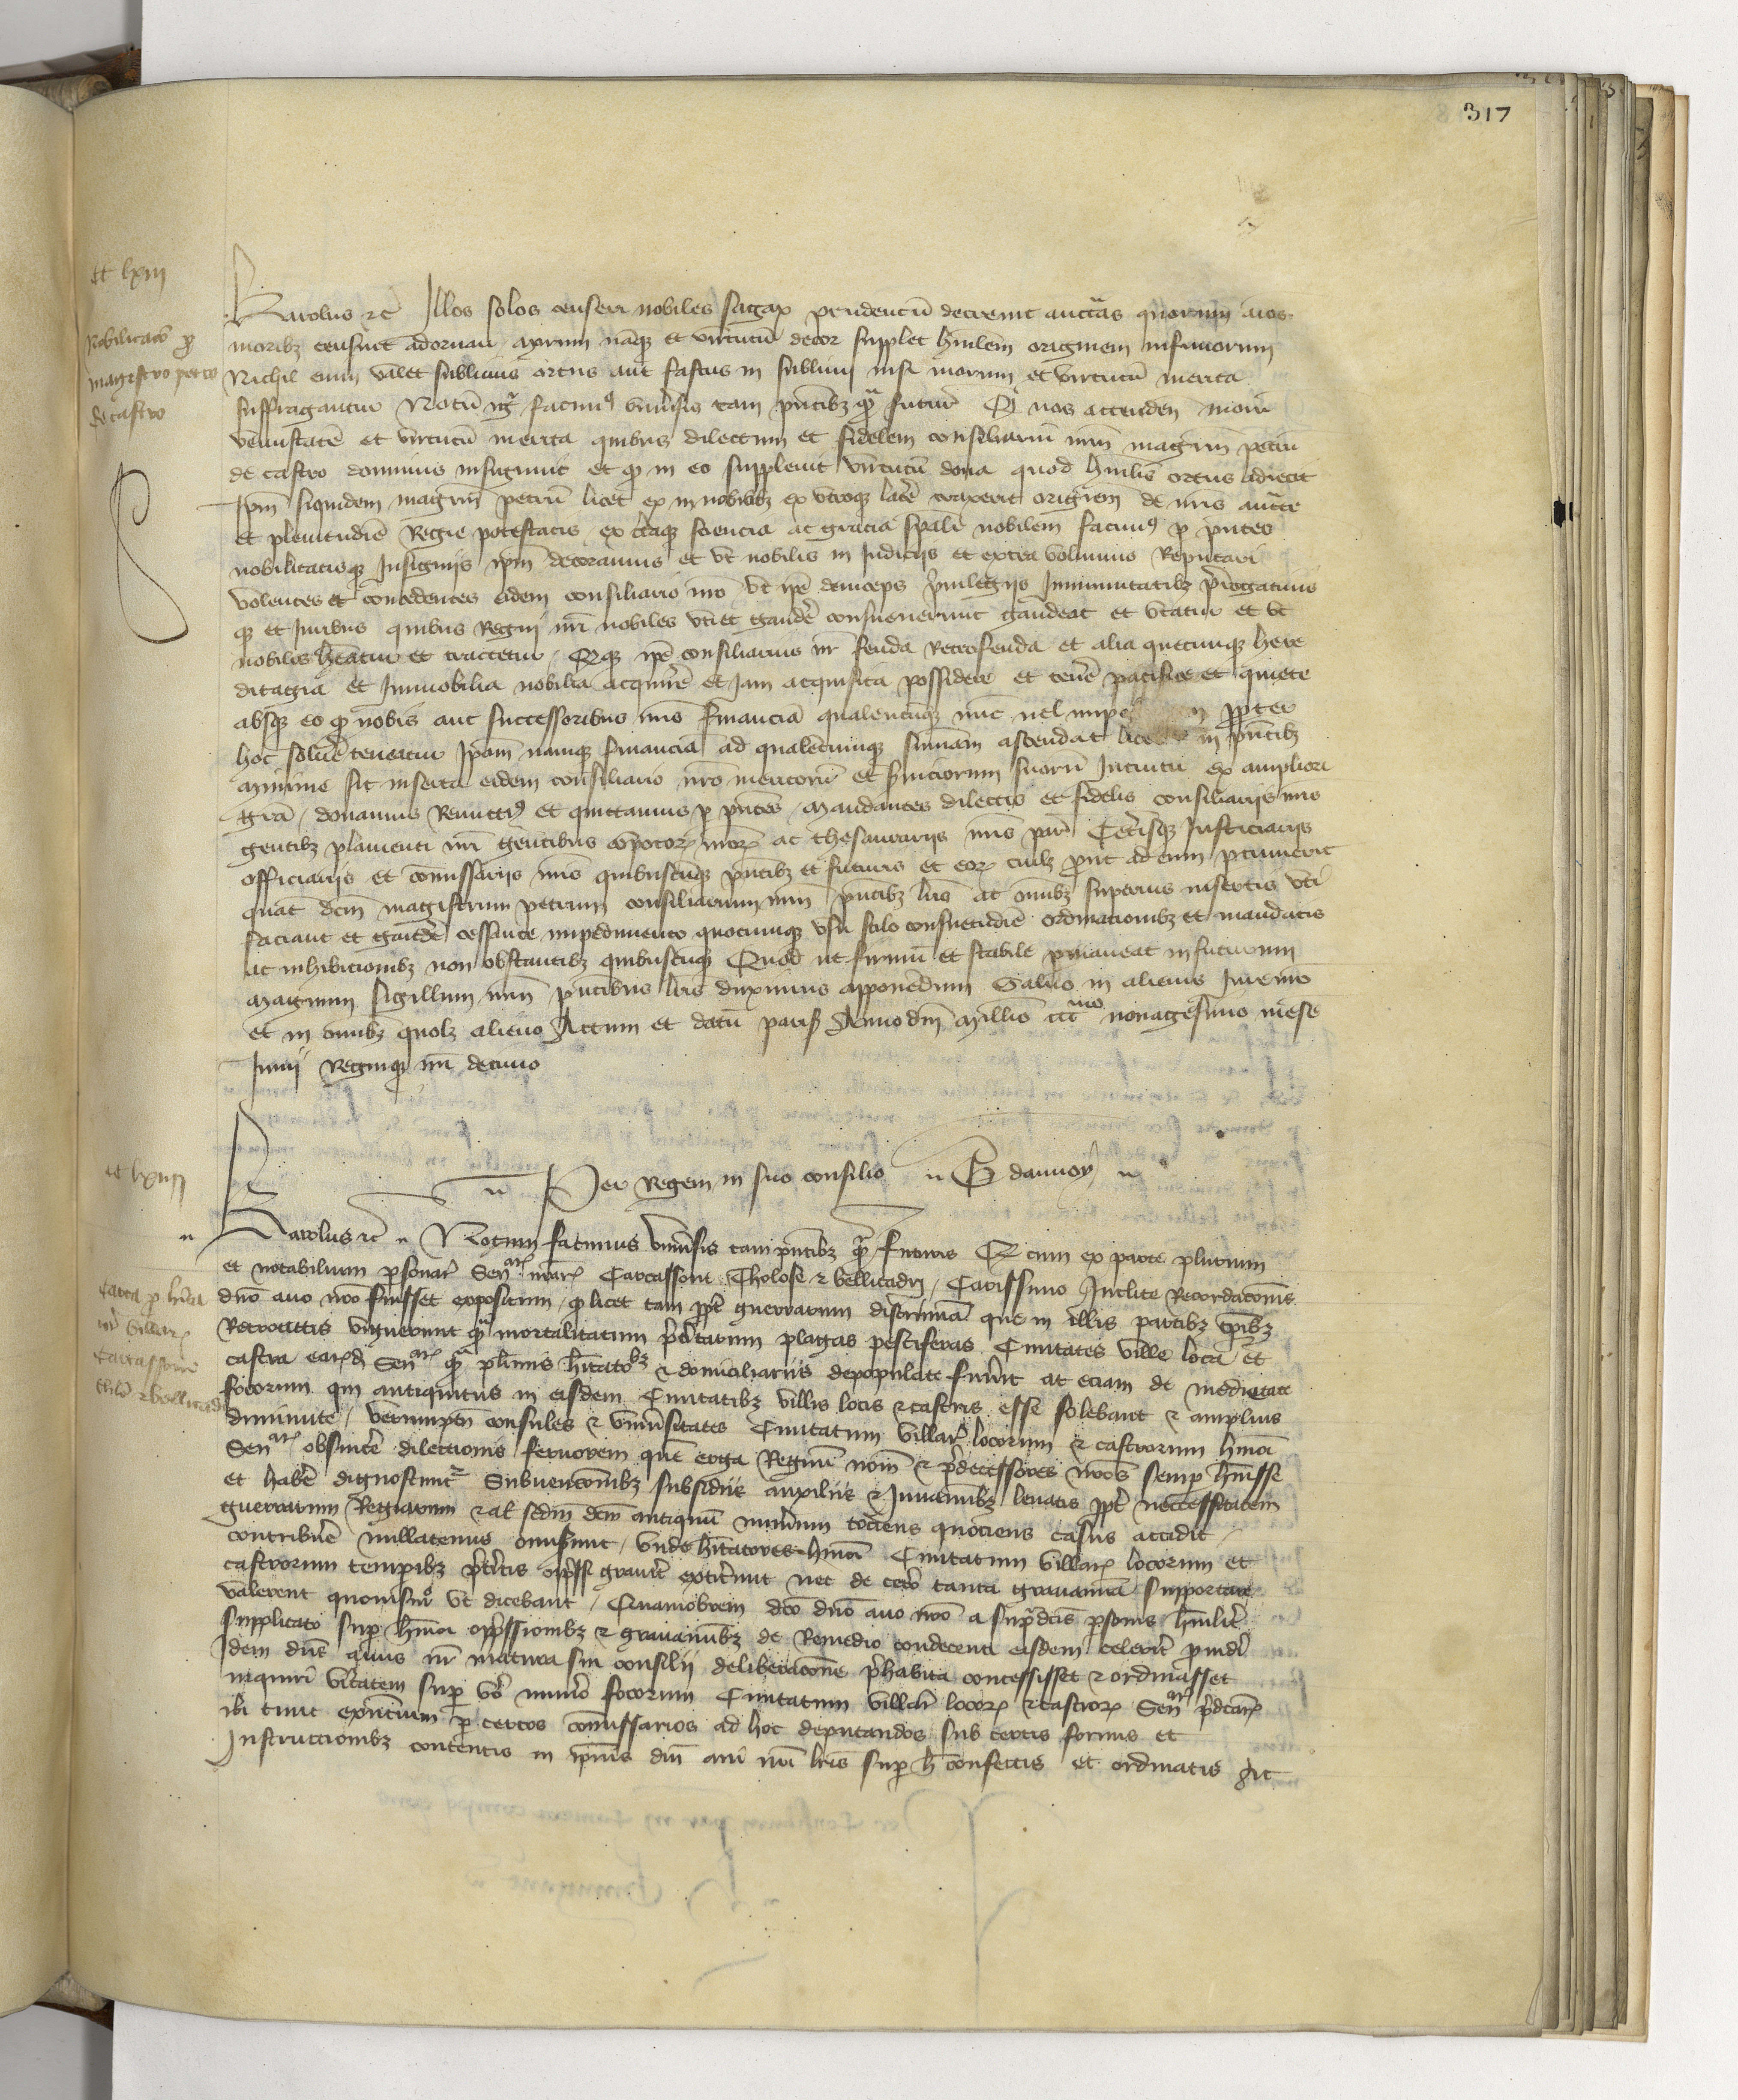 317
CC LXIII
Nobilitatio pro
magistro petro
de castro
Karolus etc Illos solos censeri nobiles sagax prudencium decrevit auctoritas quorum animos
moribz censuit adornari morum namque et virtutum decor supplet humilem originem infimorum
Nichil enim valet sublimis ortus aut fastus in sublimi nisi morum et virtutum merita
suffragantur Notum igitur facimus universis tam presentibz quam futuris Quod nos attenden morum
venustatem et virtutum merita quibus dilectum et fidelem consiliarium nostrum magistrum petrum
de castro dominus insignivit et quod in eo supplevit virtutum dona quod humilis ortus adiecit
Ipsum siquidem magistrum petrum licet ex innobilibz ex utroque latere traxerit originem de nostris auctoritate
et plenitudine Regie potestatis ex certaque sciencia ac gracia speciali nobilem facimus per presentes
nobilitatisque Insigniis ipsum decoramus et ut nobilis in Iudiciis et extra volumus Reputari
volentes et concedentes eidem consiliario nostro ut ipse deinceps privilegiis Inmunitatibz prerogativis
que et Iuribus quibus Regni nostri nobiles uti et gaudere consueverunt gaudeat et utatur et ut
nobilis habeatur et tractetur Quodque ipse consiliarius noster feuda Retrofeuda et alia quecunque here
ditagia et Inmobilia nobilia acquirere et Iam acquisita possidere et tenere pacifice et quiete
absque eo quod nobis aut successoribus nostris financiam qualemcunque nunc vel propter
hoc solvere teneatur Ipsam namque financiam ad qualemcunque summam ascendat in presentibz
minime sit inserta eidem consiliario nostro meritorum et serviciorum suorum Intuitu ex ampliori
gratia donamus Remittimus et quittamus per presentes mandantes dilectis et fidelis consiliariis nostris
gentibz parlamenti nostri gentibus compotorum nostrorum ac thesaurariis nostris parisius Ceterisque Iusticiariis
officiariis et commissariis nostris quibuscunque presentibz et futuris et eorum cuilibet prout ad eum pertinuerit
quatinus dictum magistrum petrum consiliarium nostrum presentibz litteris ac omnibz superius insertis uti
faciant et gaudere cessante impedimento quocunque usu stilo consuetudine ordinacionibz et mandatis
ac inhibicionibz non obstantibz quibuscunque Quod ut firmum et stabile permaneat in futurum
magnum sigillum nostrum presentibus litteris duximus apponendum Salvo in aliis Iure nostro
et in omnibz quolibet alieno Actum et datum parisius Anno domini millesimo CCCmo nonagesimo mense
Iunii Regnique nostri decimo
Per Regem in suo consilio G daunoy
CC LXIIII
Carta pro
villarum
Carcassone
tholose et Bellicadri
Karolus etc Notum facimus universis tam presentibz quam futuris Quod cum ex parte plurium
et notabilium personarum Senescalliarum nostrarum Carcassone Tholose et bellicadri Carissimo Inclite Recordacionis
domino avo nostro fuisset expositum quod licet tam propter guerrarum discrimina que in illis partibz temporibz
Retroactis viguerunt quam mortalitatum predictarum plagas pestiferas Civitates ville loca et
castra earumdem Senescalliarum quam plurimis habitatoribz et domiciliariis depopulate fuerint ac eciam de medietate
focorum qui antiquitus in eisdem Civitatibz villis locis et castris esse solebant et amplius
diminute verumptamen consules et universitates Civitatum villarum locorum et castrorum huiusmodi
Senescalliarum ob sincere dilectionis fervorem quem erga Regium nomen et predecessores nostros semper habuisse
et habere dignoscuntur Subvencionibz subsidiis auxiliis et Iuvaminibz levatis propter neccessitatem
guerrarum Regiarum et alias secundum dictum antiquum numerum tociens quociens casus accidit
contribuere nullatenus omiserunt unde habitatores huiusmodi Civitatum villarum locorum et
castrorum temporibz preteritis oppressi graviter extiterunt nec de cetero tanta gravamina supportare
valerent quovismodo ut dicebant Quamobrem dicto domino avo nostro a supradictis personis humiliter
supplicato super huiusmodi oppressionibz et gravaminibz de Remedio condecenti eisdem celeriter provideri
Idem dominus avus noster matura sui consilii deliberacione prehabita concessisset et ordinasset
inquiri veritatem super vero numero focorum Civitatum villarum locorum et castrorum Senescalliarum predictarum
ibi tunc existencium per certos commissarios ad hoc deputandos sub certis formis et
Instruccionibz contentis in ipsius domini avi nostri litteris super hoc confectis et ordinatis Ac